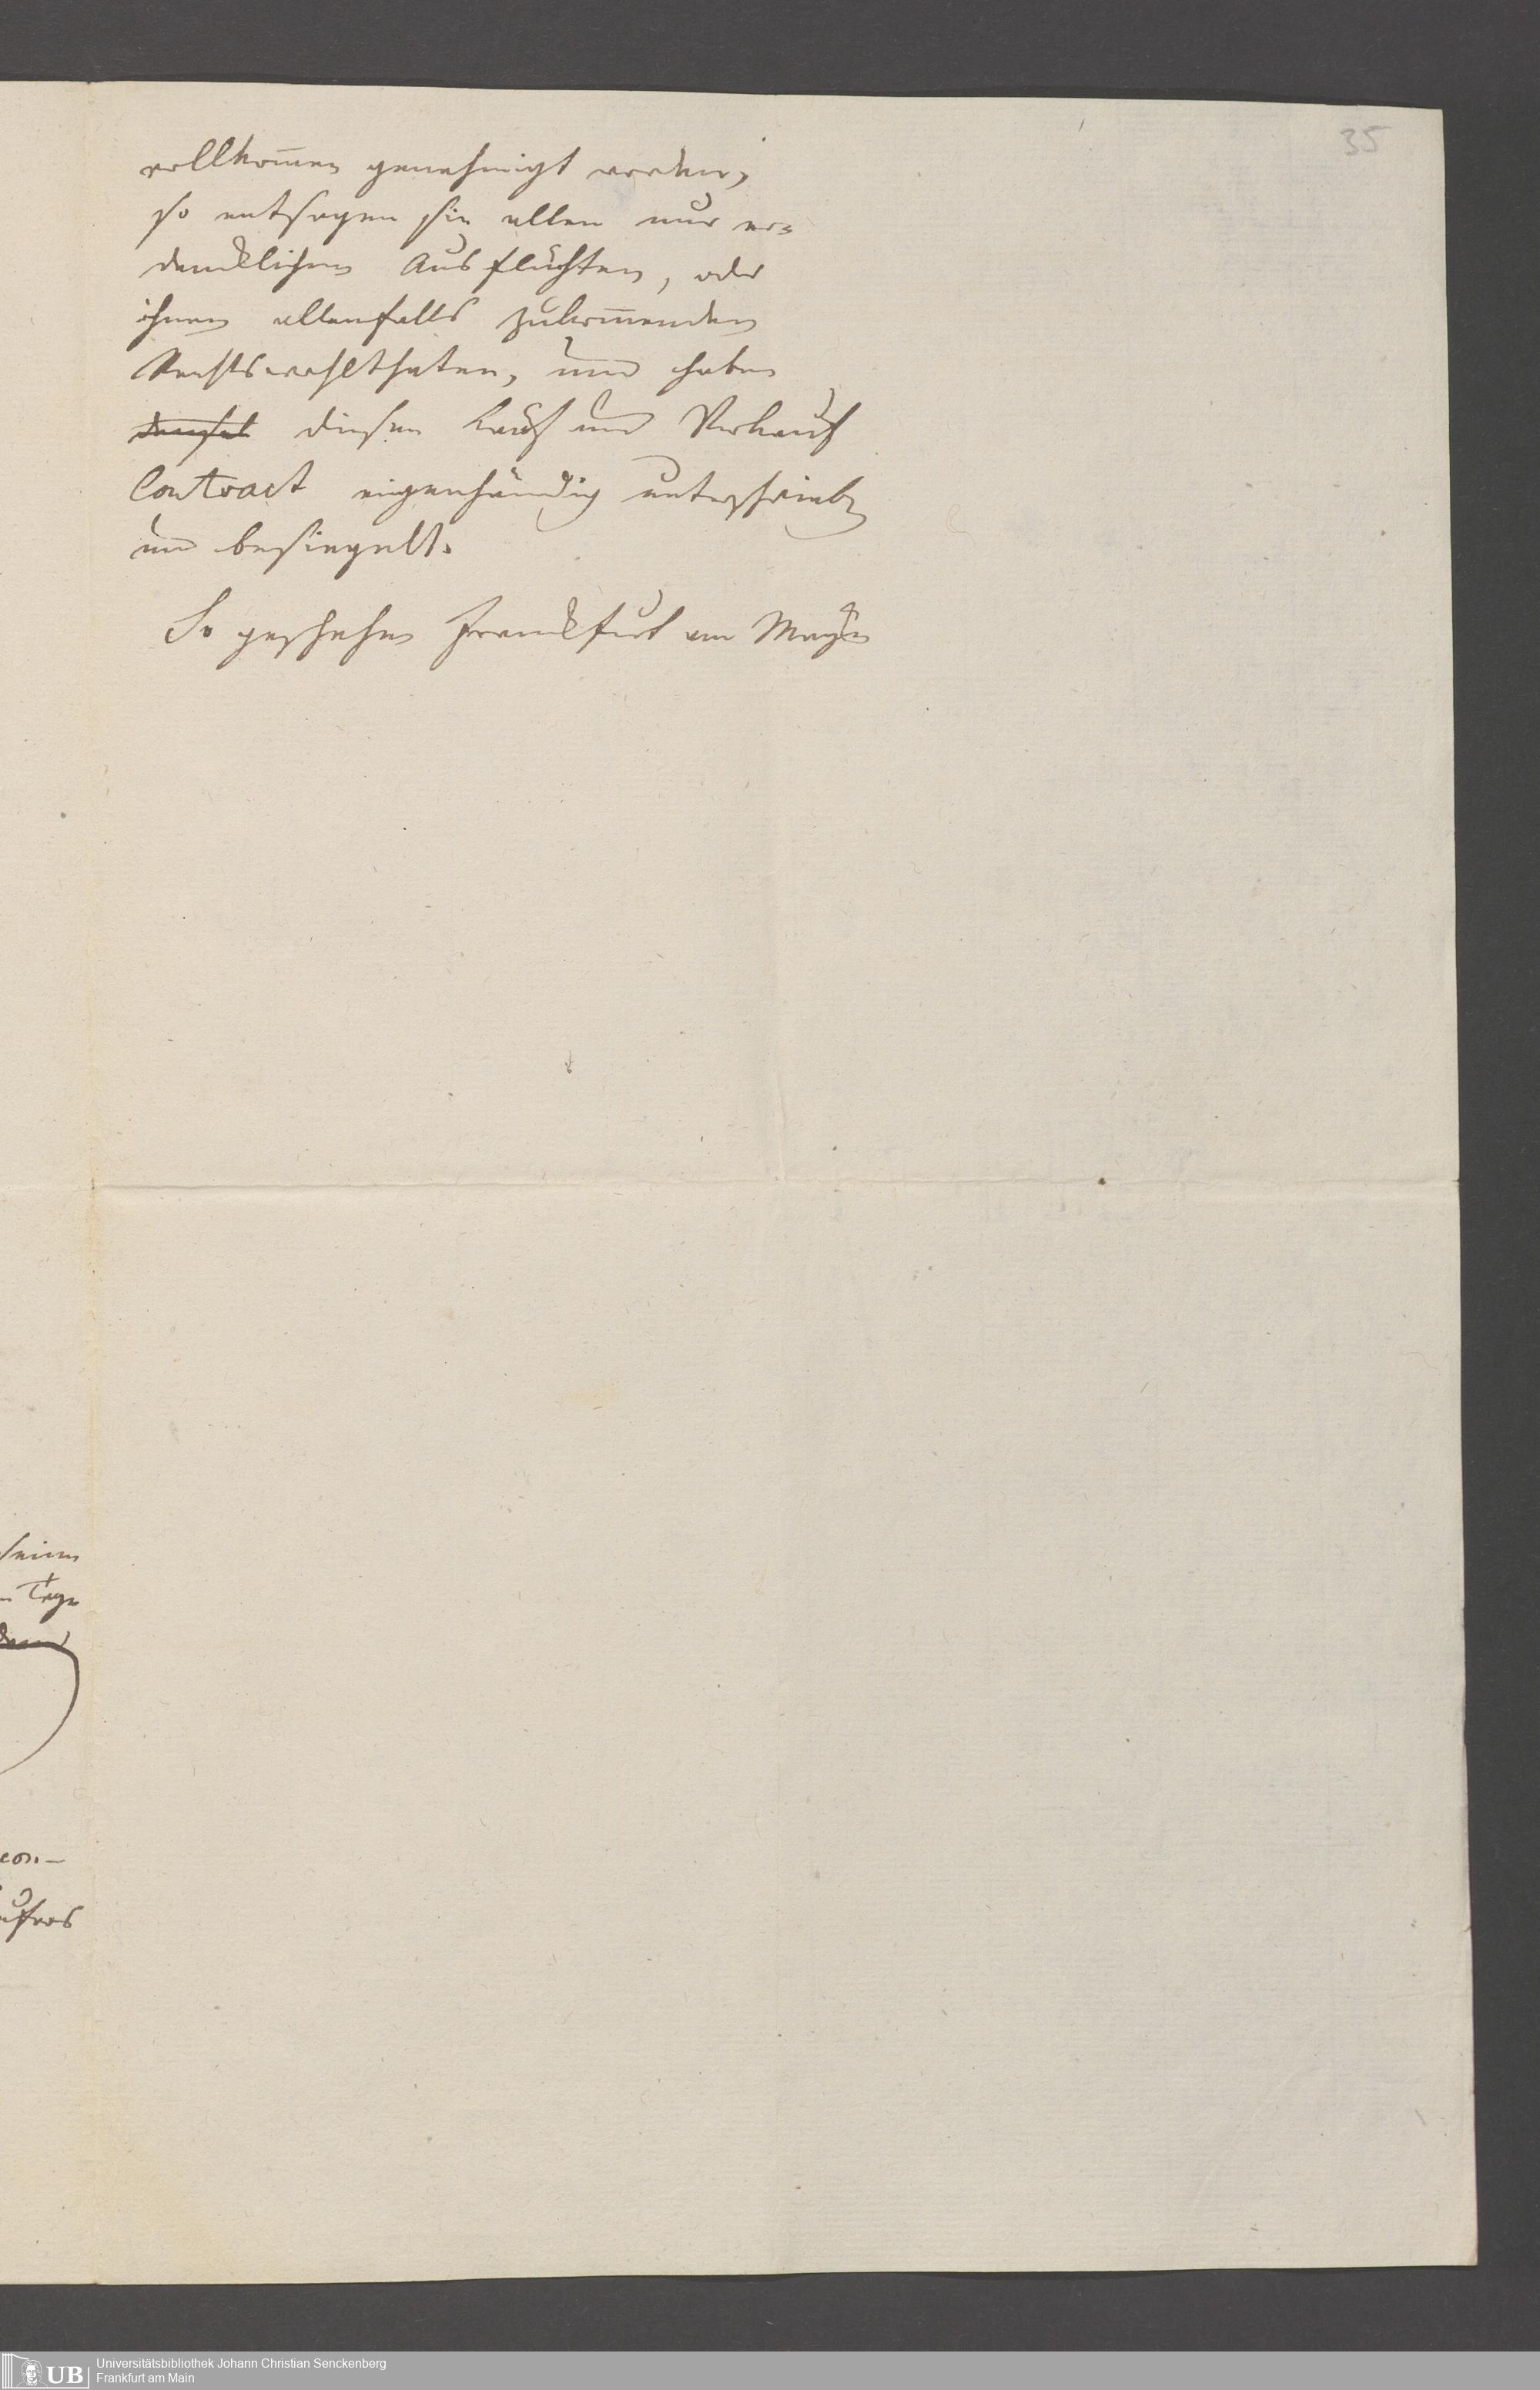 35
vollkom̅en genehmigt worden,
so entsagen sie allen nur er=
dencklichen Ausflüchten, oder
ihnen allenfalls zukom̅enden
Rechtswohlthaten, und haben
diesen Kauf und Verkauf
Contract eigenhändig unterschrieben
und besiegelt.
So geschehen Franckfurt am Mayn
seinen
Tage
UB
Universitätsbibliothek Johann Christian Senckenberg
Frankfurt am Main